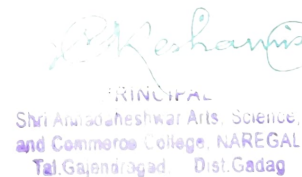 PRINCIPAL
Shri Annadaneshwar Arts, Science,
and Commerce College, NAREGAL
Tal.Gajendragad. Dist.Gadag